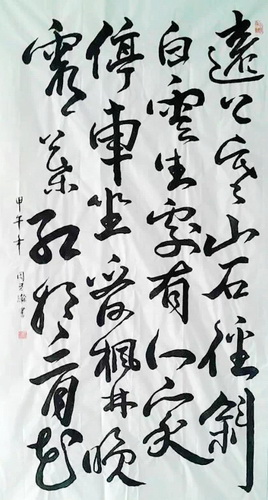 遠上寒山石徑斜
白雲生處有人家
停車坐愛楓林晚
霜葉紅於二月花
甲午年 書